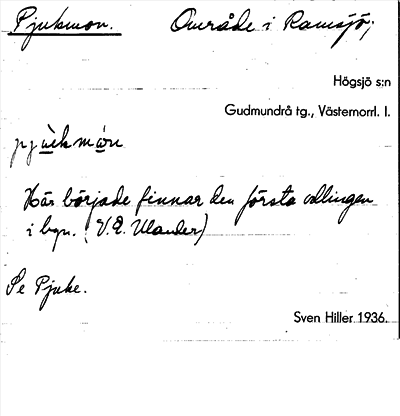 Pjukmon. Område i Ramsjö;
Högsjö s:n
Gudmundrå tg., Västernorrl. l.
pjùkmòn
Här började finnar den första odlingen
i byn. (V.E. Ulander)
Se Pjuke.
Sven Hiller 1936.